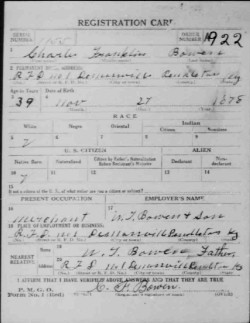 REGISTRATION CARD
SERIAL NUMBER
ORDER NUMBER 1922
Charlie Franklin Bowen
2 PERMANENT HOME ADDRESS:
R F D No 1 Demossville Pendleton Ky
Age in Years
Date of Birth
39 Nov 27 1878
RACE
White Negro Oriental Indian
Citizen Noncitizen
U. S. CITIZEN ALIEN
Native Born Naturalized Citizen by Father's Naturalization Before Registrant's Majority Declarant Non-declarant
If not a citizen of the U.S., of what nation are you a citizen or subject?
PRESENT OCCUPATION EMPLOYER'S NAME
Merchant W. T. Bowen & Son
PLACE OF EMPLOYMENT OR BUSINESS:
R. F. D. No 1 Demossville Pendleton Ky
NEAREST RELATIVE
Name W. T. Bowen, Father
Address R F D No 1 Demossville Pendleton Ky
I AFFIRM THAT I HAVE VERIFIED ABOVE ANSWERS AND THAT THEY ARE TRUE
P. M. G. O.
Form No. 1 (Red)
C. F. Bowen